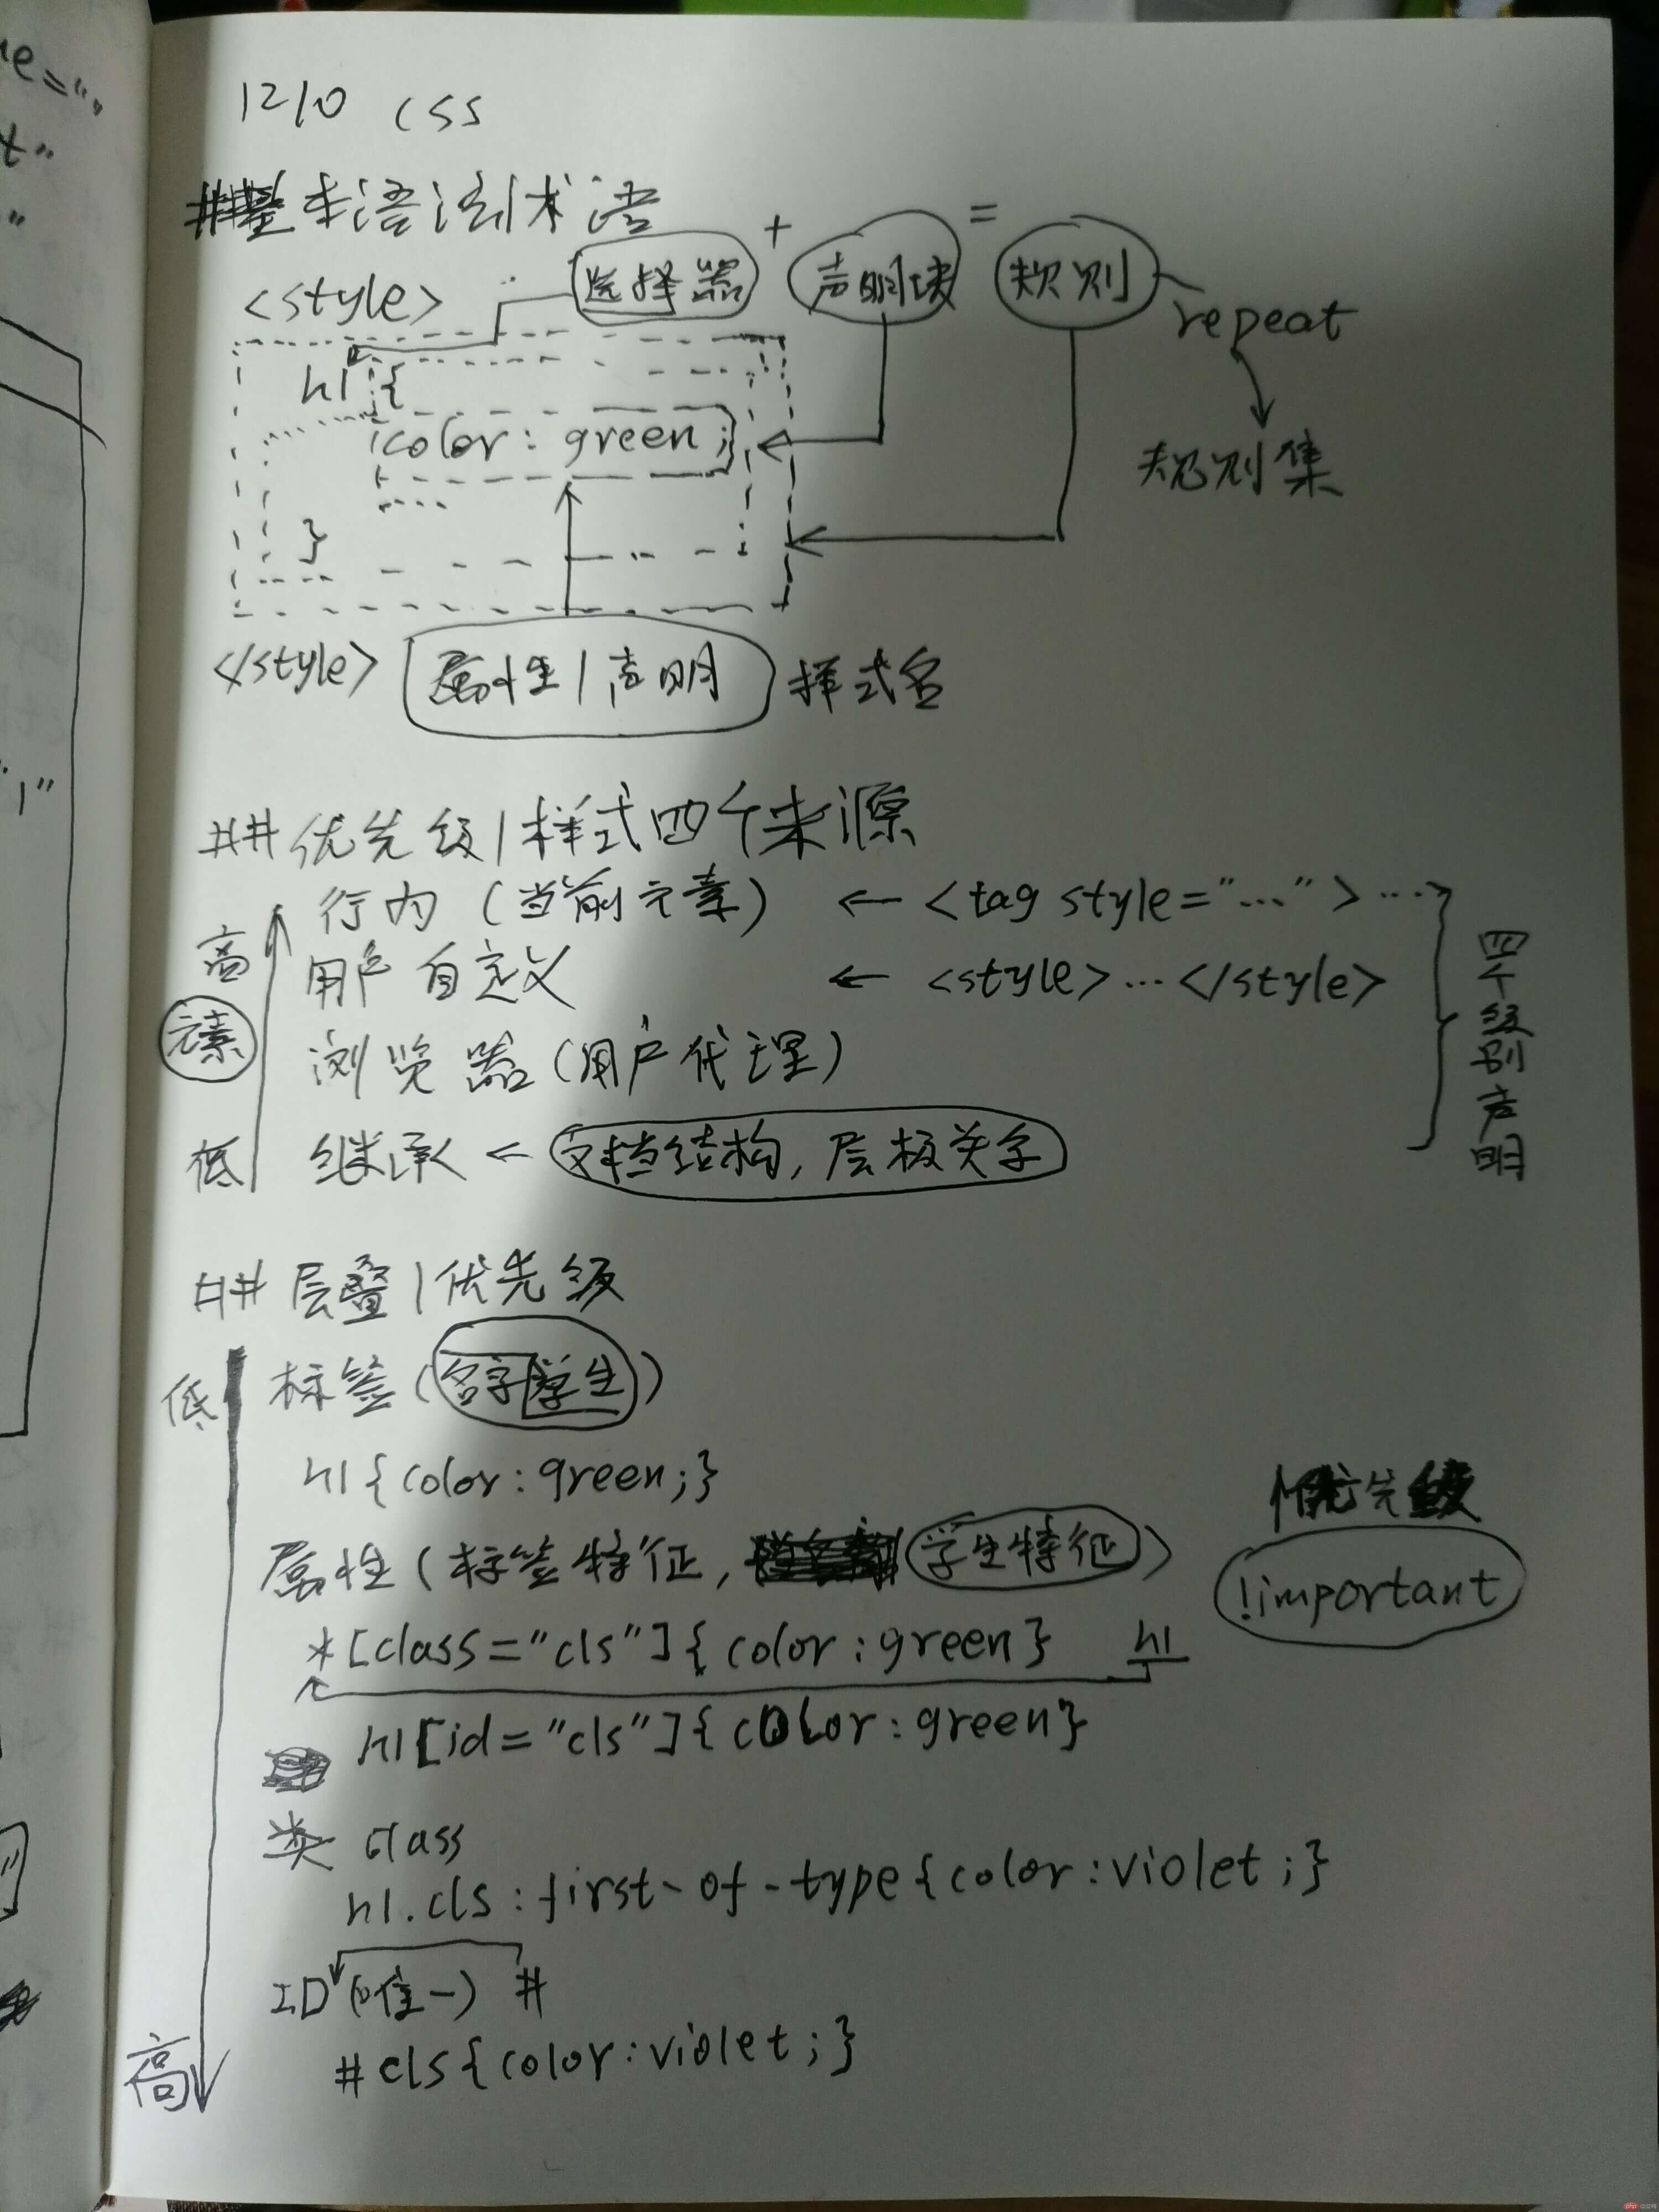 1210 CSS
## 基本语法|术语
选择器 + 声明块 = 规则
<style>
repeat
h1 {
color: green;
....
规则集
}
</style> 属性|声明 样式名
## 优先级|样式四个来源
行内 (当前元素) ← <tag style="...">...
高 用户自定义 ← <style>...</style>
元素
浏览器 (用户代理)
低 继承 ← 文档结构, 层级关字
四个级别声明
## 层叠|优先级
低 标签 (名字|学生)
h1{color:green;}
优先级
属性 (标签特征, 学生特征)
!important
*[class="cls"]{color:green} h1
h1[id="cls"]{color:green}
类 class
h1.cls:first-of-type{color:violet;}
ID (唯一) #
高 #cls{color:violet;}